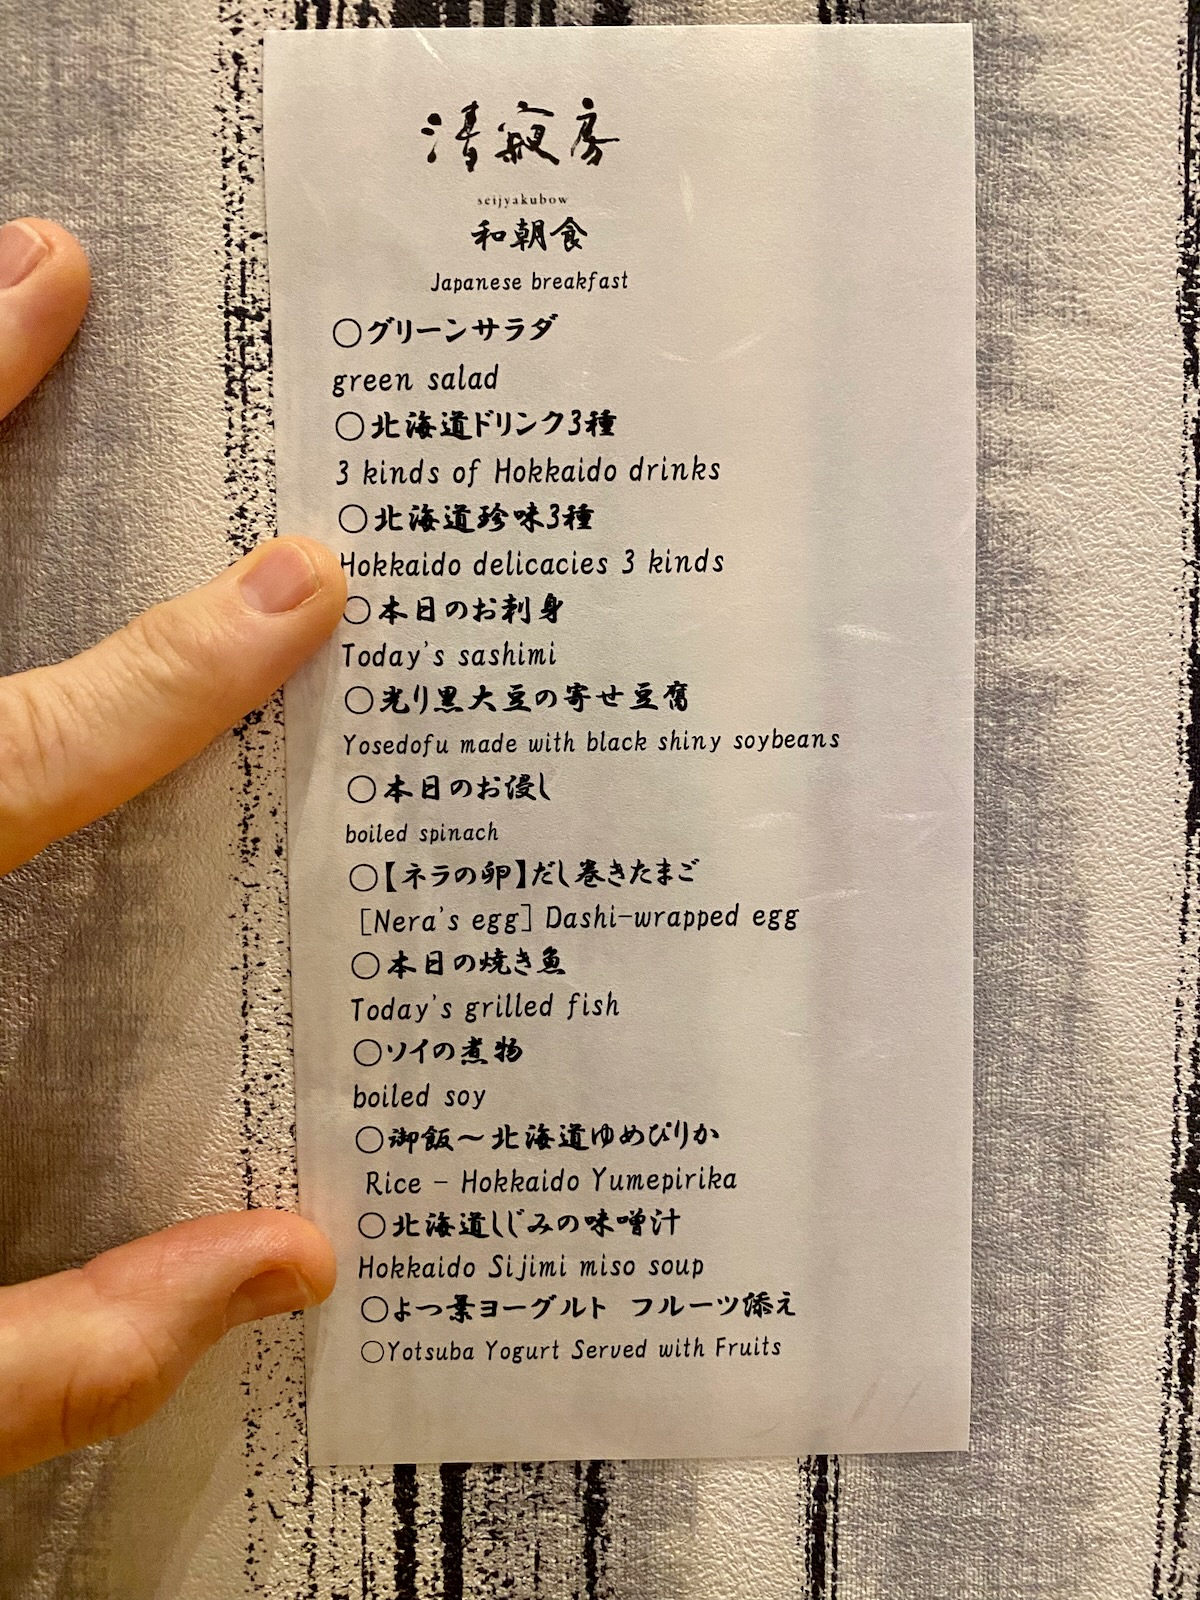 清寂房
seijyakubow
和朝食
Japanese breakfast
○グリーンサラダ
green salad
○北海道ドリンク3種
3 kinds of Hokkaido drinks
○北海道珍味3種
Hokkaido delicacies 3 kinds
○本日のお刺身
Today's sashimi
○光り黒大豆の寄せ豆腐
Yosedofu made with black shiny soybeans
○本日のお浸し
boiled spinach
○【ネラの卵】だし巻きたまご
[Nera's egg] Dashi-wrapped egg
○本日の焼き魚
Today's grilled fish
○ソイの煮物
boiled soy
○御飯～北海道ゆめぴりか
Rice - Hokkaido Yumepirika
○北海道しじみの味噌汁
Hokkaido Sijimi miso soup
○よつ葉ヨーグルト フルーツ添え
○Yotsuba Yogurt Served with Fruits